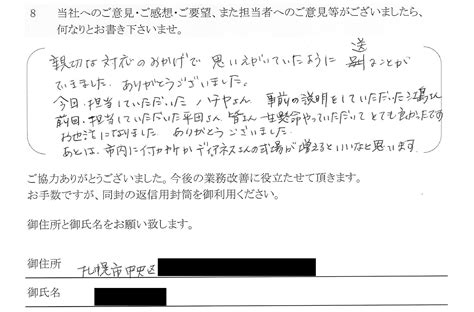 8 当社へのご意見・ご感想・ご要望、また担当者へのご意見等がございましたら、
何なりとお書き下さいませ。
親切な対応のおかげで 思いえがいていたように 送ることが
できました。ありがとうございました。
今回、担当していただいた 事前の説明をしていただいた江島さん
前回、担当していただいた平田さん 皆さん 一生懸命やっていただいて とても良かったです
お世話になりました。ありがとうございました。
あとは、市内に何か所か ティアネスさんの式場が増えるといいなと思います。
ご協力ありがとうございました。今後の業務改善に役立たせて頂きます。
お手数ですが、同封の返信用封筒を御利用ください。
御住所と御氏名をお願い致します。
御住所 札幌市中央区
御氏名